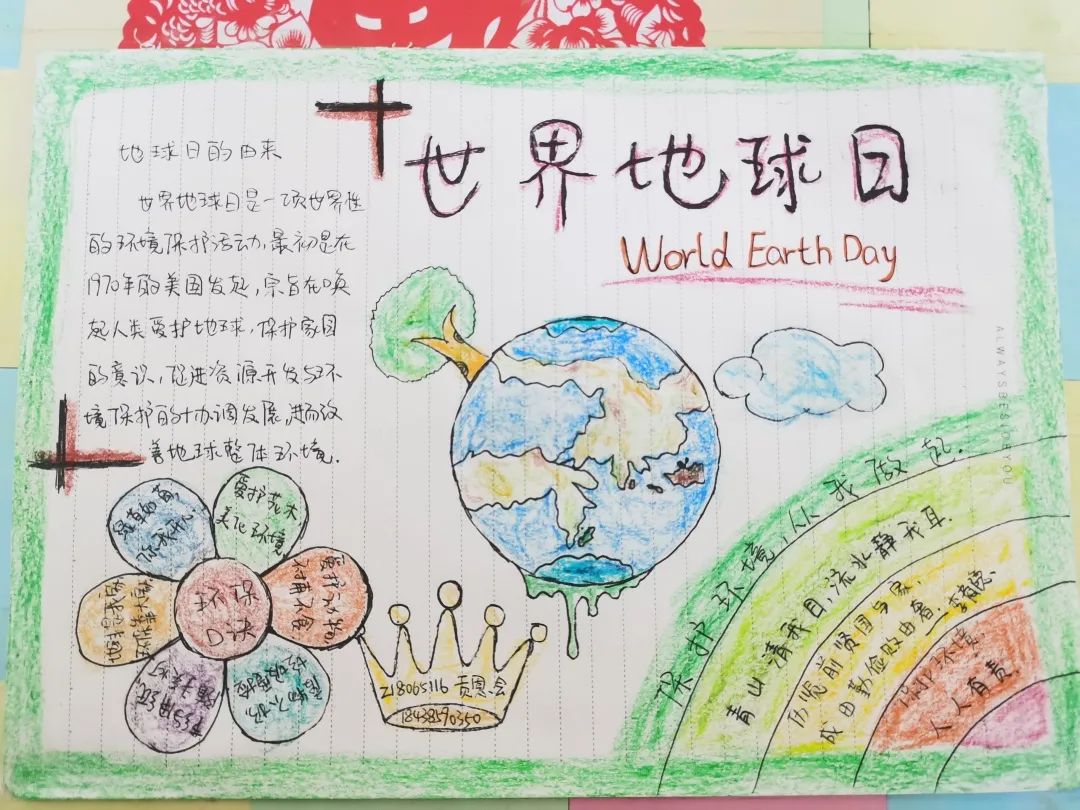 世界地球日
World Earth Day
地球日的由来
世界地球日是一项世界性
的环境保护活动,最初是在
1970年的美国发起,宗旨在唤
起人类爱护地球,保护家园
的意识,促进资源开发与环
境保护的协调发展,进而改
善地球整体环境.
爱护花木
美化环境
环保
口诀
爱护动物
218065116
18438590350
保护环境,从我做起.
青山清我目,流水静我耳.
历览前贤国与家,
成由勤俭败由奢.—李商隐.
保护环境
人人有责.
ALWAYSBESIDEYOU